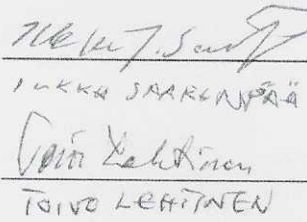 ILKKA SAARENPÄÄ
Toivo Lehtinen
TOIVO LEHTINEN